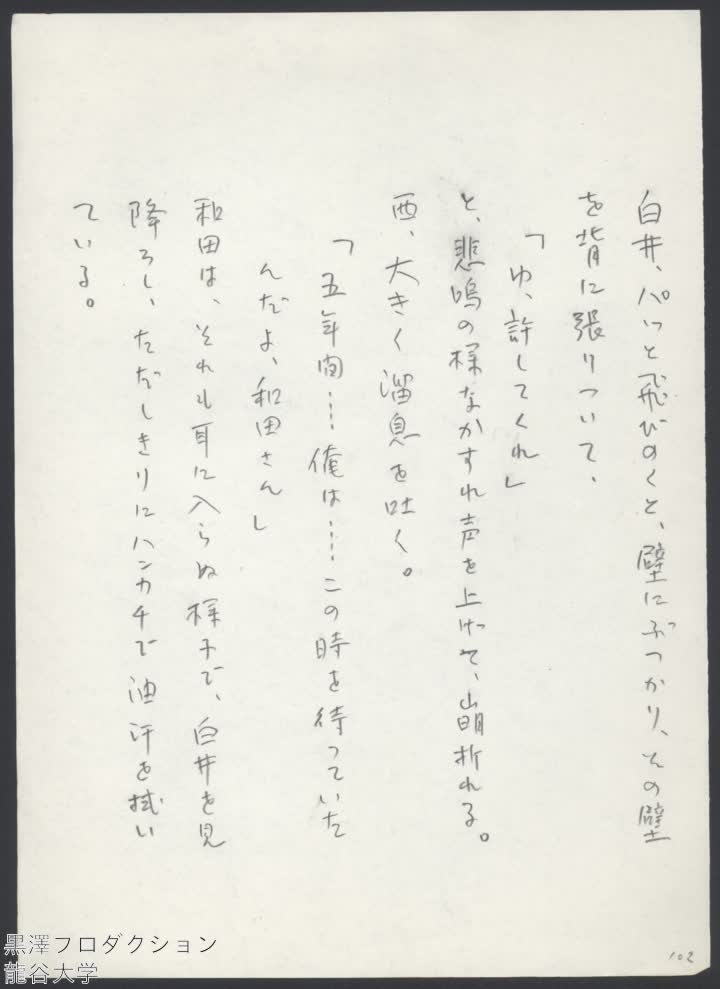 白井、パッと飛びのくと、壁にぶつかり、その壁
を背に張りついて、
「ゆ、許してくれ」
と、悲鳴の様なかすれ声を上げて、崩折れる。
西、大きく溜息を吐く。
「五年間……俺は……この時を待っていた
んだよ、和田さん」
和田は、それも耳に入らぬ様子で、白井を見
降ろし、ただしきりにハンカチで油汗を拭い
ている。
102
黒澤フロダクション
龍谷大学